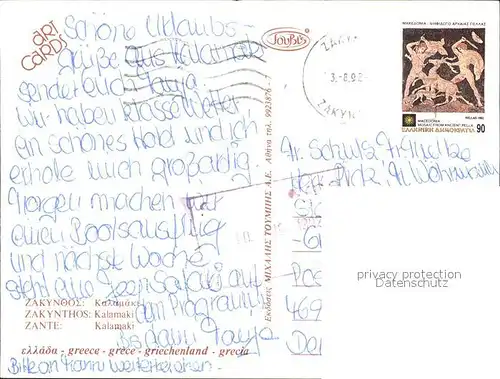 art
CARDS
Schöne Urlaubs-
grüße aus Kalamaki
sendet euch Tanja
Wir haben klasse Wetter
ein schönes Hotel und ich
erhole mich großartig
Morgen machen wir
einen Bootsausflug
und nächste Woche
steht eine Jeep Safari auf
dem Programm
Bis dann Tanja
Bitte an Frau weiterreichen -
ΖΑΚΥΝΘΟΣ: Καλαμάκι
ZAKYNTHOS: Kalamaki
ZANTE: Kalamaki
ελλάδα - greece - grèce - griechenland - grecia
Τουμπις
Εκδόσεις ΜΙΧΑΛΗΣ ΤΟΥΜΠΗΣ Α.Ε. Αθήνα τηλ. 9923876 - 7
ΖΑΚΥΝ
3.-8.92
ZAKYNT
ΜΑΚΕΔΟΝΙΑ - ΨΗΦΙΔΩΤΟ ΑΡΧΑΙΑΣ ΠΕΛΛΑΣ
MACEDONIA
MOSAIC FROM ANCIENT PELLA
ΕΛΛΗΝΙΚΗ ΔΗΜΟΚΡΑΤΙΑ 90
Fr. Schulz
Fr. Wohn
Pos
469
De
privacy protection
Datenschutz